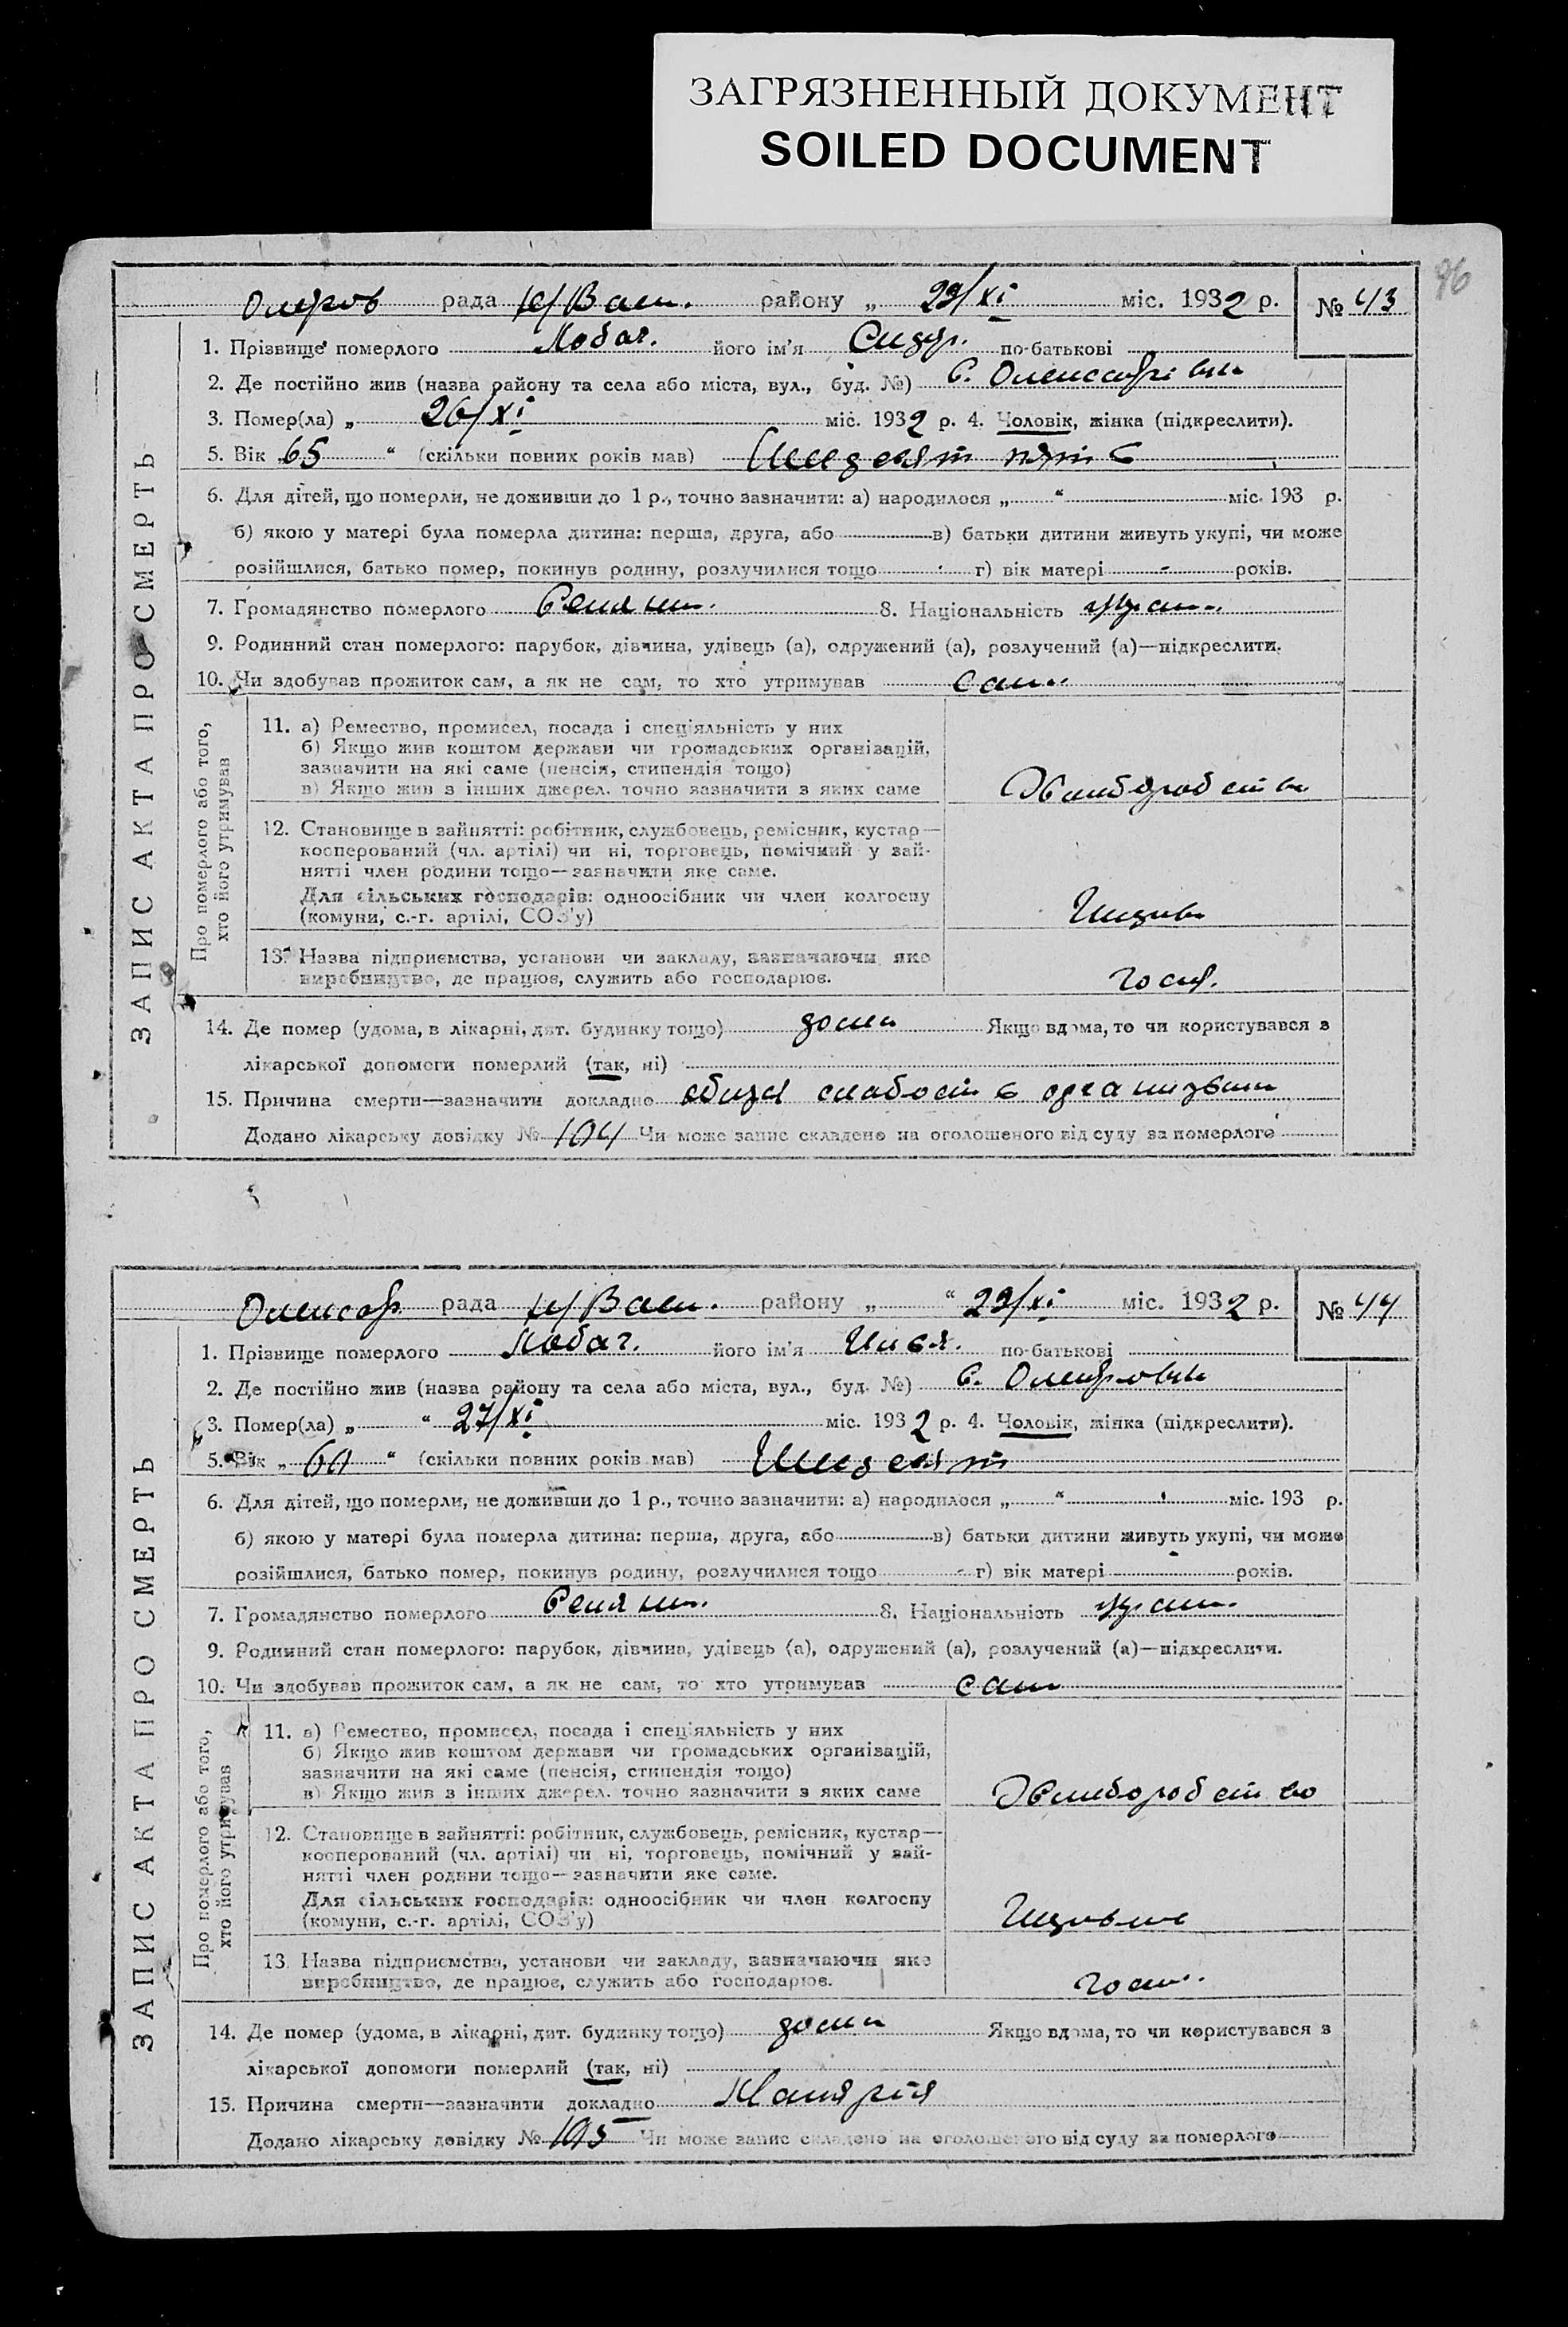 ЗАГРЯЗНЕННЫЙ ДОКУМЕНТ
SOILED DOCUMENT
96
рада Н/Вас. району „ 29/XI міс. 1932 р. № 43
1. Прізвище померлого Лобач. його ім'я Сидір. по-батькові
2. Де постійно жив (назва району та села або міста, вул., буд. №) С.
3. Помер(ла) „ 26/XI міс. 1932 р. 4. Чоловік, жінка (підкреслити).
5. Вік „65 “ (скільки повних років мав) Шисдесят пять
6. Для дітей, що померли, не доживши до 1 р., точно зазначити: а) народилося „ “ міс. 193 р.
б) якою у матері була померла дитина: перша, друга, або в) батьки дитини живуть укупі, чи може
розійшлися, батько помер, покинув родину, розлучилися тощо г) вік матері - років.
7. Громадянство померлого Селянин. 8. Національність украин.
9. Родинний стан померлого: парубок, дівчина, удівець (а), одружений (а), розлучений (а)—підкреслити.
10. Чи здобував прожиток сам, а як не сам, то хто утримував сам.
ЗАПИС АКТА ПРО СМЕРТЬ
Про померлого або того,
хто його утримував
11. а) Ремество, промисел, посада і спеціяльність у них
б) Якщо жив коштом держави чи громадських організацій,
зазначити на які саме (пенсія, стипендія тощо)
в) Якщо жив з інших джерел, точно зазначити з яких саме Хліборобство
12. Становище в зайнятті: робітник, службовець, ремісник, кустар—
косперований (чл. артілі) чи ні, торговець, помічний у зай-
нятті член родини тощо—зазначити яке саме.
Для сільських господарів: одноосібник чи член колгоспу
(комуни, с.-г. артілі, СОЗ'у)
13. Назва підприємства, установи чи закладу, зазначаючи яке
виробництво, де працює, служить або господарює. госп.
14. Де помер (удома, в лікарні, дит. будинку тощо) дома Якщо вдома, то чи користувався з
лікарської допомоги померлий (так, ні)
15. Причина смерти—зазначити докладно обща слабость организма
Додано лікарську довідку № 104 Чи може запис складено на оголошеного від суду за померлого
Олександр рада Н/Вас. району „ “ 29/XI міс. 1932 р. № 44
1. Прізвище померлого Лобач. його ім'я Илья. по-батькові
2. Де постійно жив (назва району та села або міста, вул., буд. №) С.
3. Помер(ла) „ “ 27/XI міс. 1932 р. 4. Чоловік, жінка (підкреслити).
5. Вік „ 60 “ (скільки повних років мав) Шисдесят
6. Для дітей, що померли, не доживши до 1 р., точно зазначити: а) народилося „ “ міс. 193 р.
б) якою у матері була померла дитина: перша, друга, або в) батьки дитини живуть укупі, чи може
розійшлися, батько помер, покинув родину, розлучилися тощо г) вік матері років.
7. Громадянство померлого Селянин. 8. Національність украин.
9. Родинний стан померлого: парубок, дівчина, удівець (а), одружений (а), розлучений (а)—підкреслити.
10. Чи здобував прожиток сам, а як не сам, то хто утримував сам
ЗАПИС АКТА ПРО СМЕРТЬ
Про померлого або того,
хто його утримував
11. а) Ремество, промисел, посада і спеціяльність у них
б) Якщо жив коштом держави чи громадських організацій,
зазначити на які саме (пенсія, стипендія тощо)
в) Якщо жив з інших джерел, точно зазначити з яких саме Хліборобство
12. Становище в зайнятті: робітник, службовець, ремісник, кустар—
кооперований (чл. артілі) чи ні, торговець, помічний у зай-
нятті член родини тощо—зазначити яке саме.
Для сільських господарів: одноосібник чи член колгоспу
(комуни, с.-г. артілі, СОЗ'у)
13. Назва підприємства, установи чи закладу, зазначаючи яке
виробництво, де працює, служить або господарює. госп.
14. Де помер (удома, в лікарні, дит. будинку тощо) дома Якщо вдома, то чи користувався з
лікарської допомоги померлий (так, ні)
15. Причина смерти—зазначити докладно Малярія
Додано лікарську довідку № 105 Чи може запис складено на оголошеного від суду за померлого